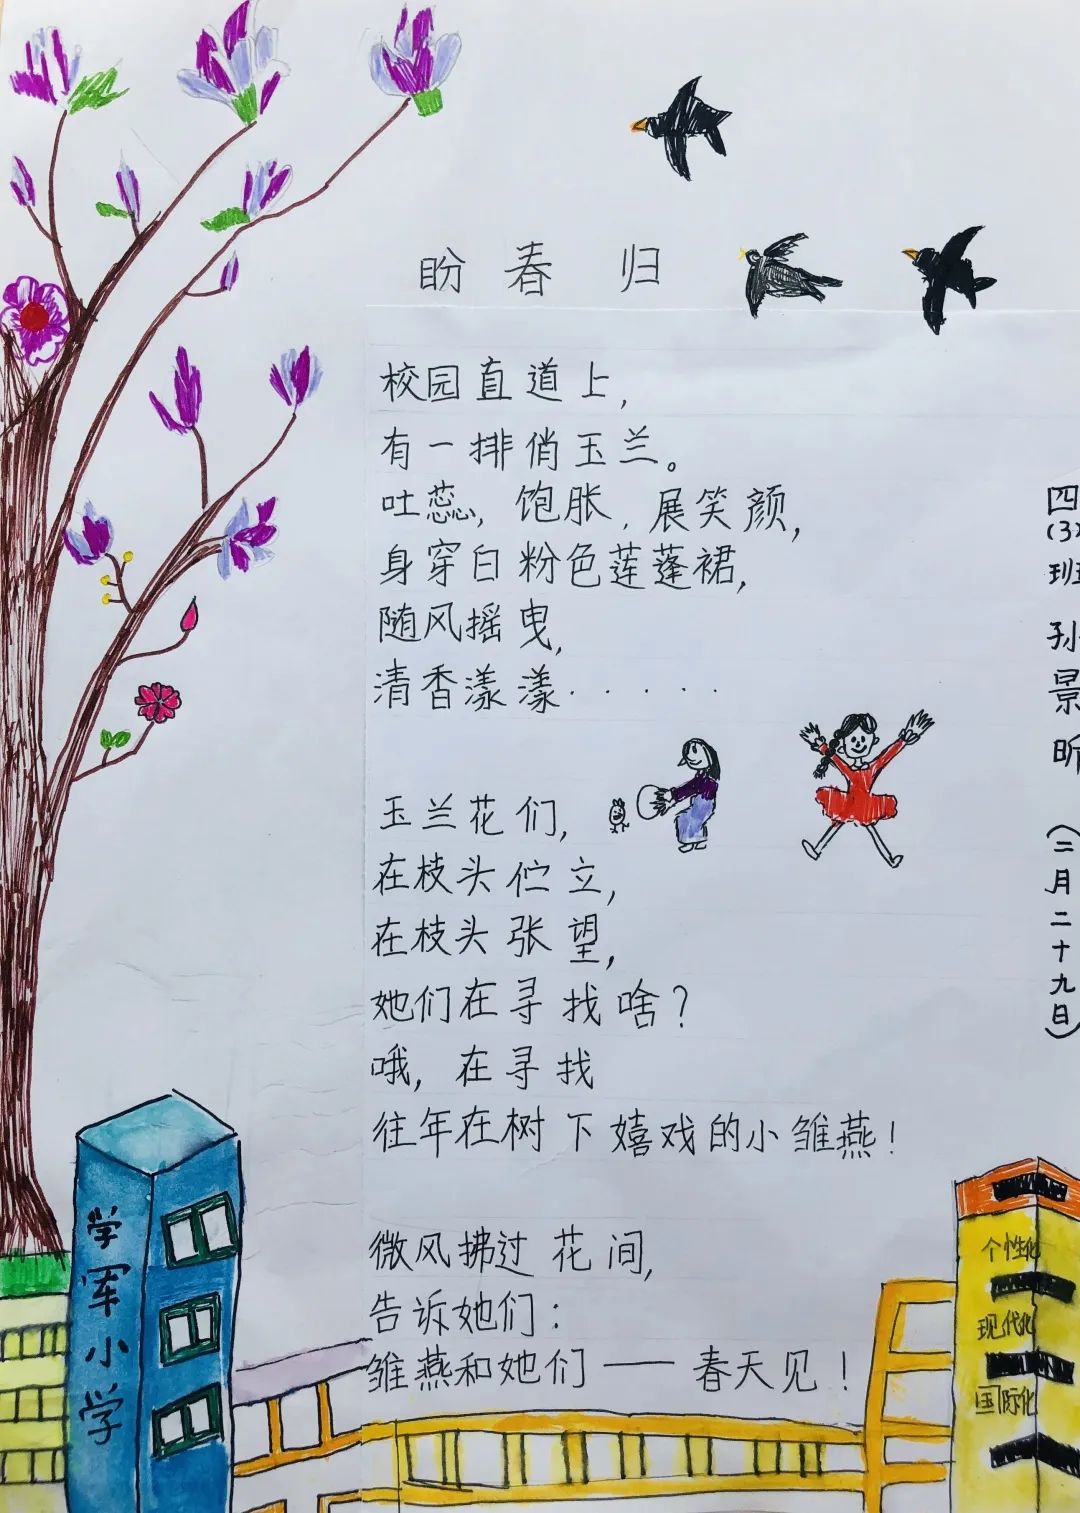 盼春归
校园直道上,
有一排俏玉兰。
吐蕊,饱胀,展笑颜,
身穿白粉色莲蓬裙,
随风摇曳,
清香漾漾······
玉兰花们,
在枝头伫立,
在枝头张望,
她们在寻找啥?
哦,在寻找
往年在树下嬉戏的小雏燕!
微风拂过花间,
告诉她们:
雏燕和她们——春天见!
四(3)班 孙景昕 (二月二十九日)
学军小学
个性化
现代化
国际化